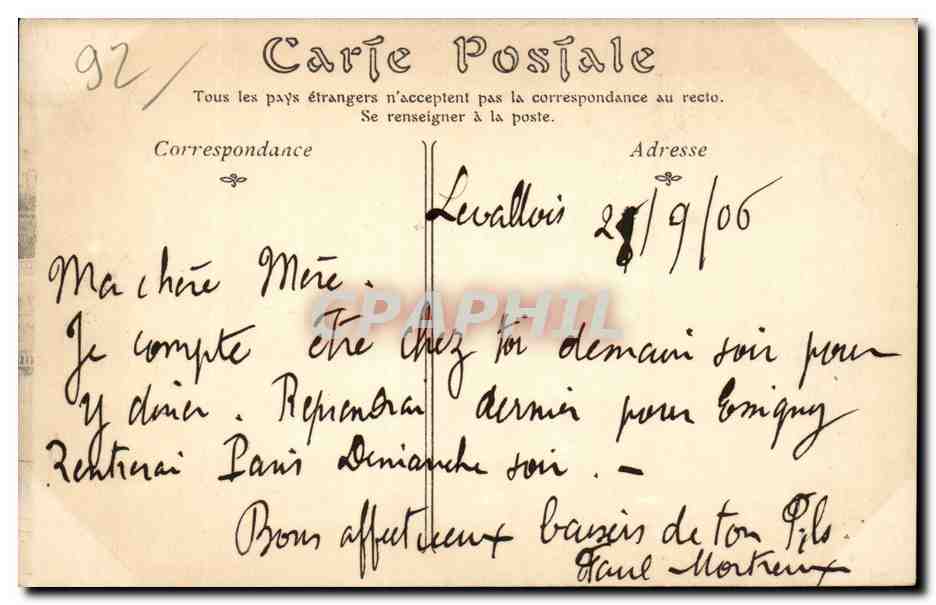 92/
Carte Postale
Tous les pays étrangers n'acceptent pas la correspondance au recto.
Se renseigner à la poste.
Correspondance
Adresse
Levallois 28/9/06
Ma chère Mère.
CPAPHIL
Je compte être chez toi demain soir pour
y diner. Reprendrai dernier pour Essigny
Rentrerai Paris Dimanche soir. –
Bons affectueux baisers de ton Fils.
Paul Mortreux